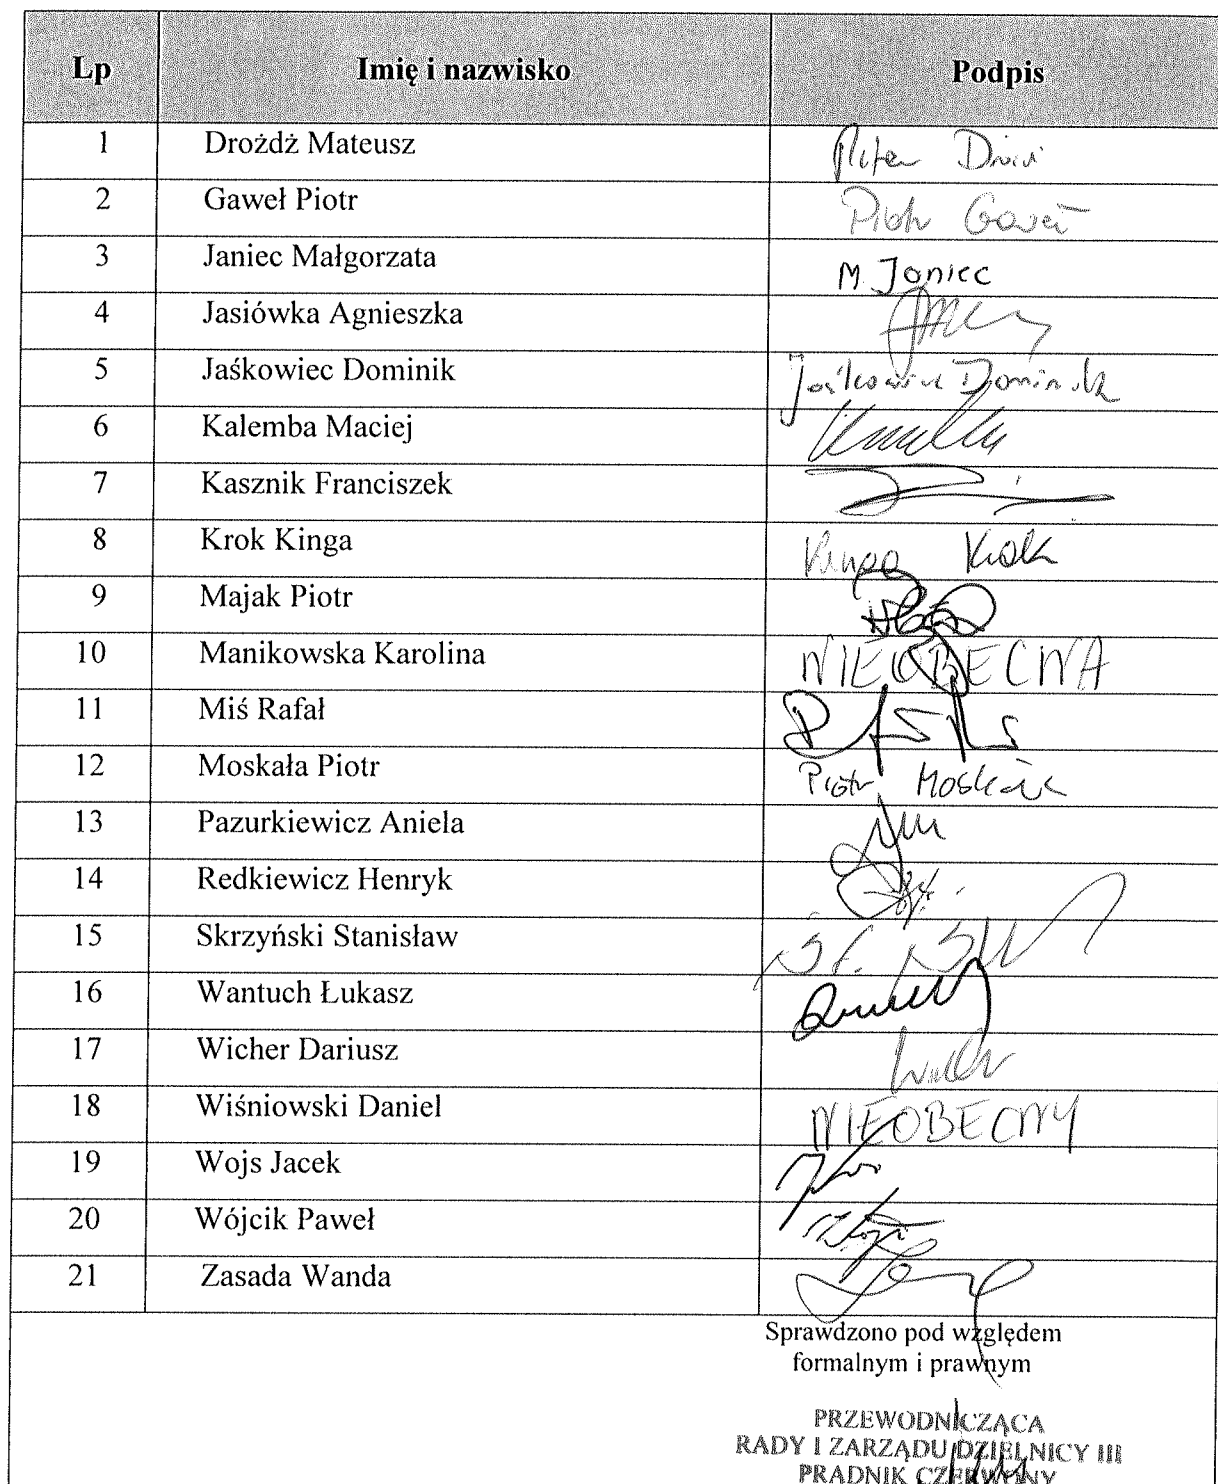 Lp Imię i nazwisko Podpis
1 Drożdż Mateusz
2 Gaweł Piotr Piotr Gaweł
3 Janiec Małgorzata M. Janiec
4 Jasiówka Agnieszka
5 Jaśkowiec Dominik Jaśkowiec Dominik
6 Kalemba Maciej
7 Kasznik Franciszek
8 Krok Kinga Kinga Krok
9 Majak Piotr
10 Manikowska Karolina NIEOBECNA
11 Miś Rafał
12 Moskała Piotr Piotr Moskała
13 Pazurkiewicz Aniela
14 Redkiewicz Henryk
15 Skrzyński Stanisław
16 Wantuch Łukasz
17 Wicher Dariusz
18 Wiśniowski Daniel NIEOBECNY
19 Wojs Jacek
20 Wójcik Paweł
21 Zasada Wanda
Sprawdzono pod względem
formalnym i prawnym
PRZEWODNICZĄCA
RADY I ZARZĄDU DZIELNICY III
PRĄDNIK CZERWONY